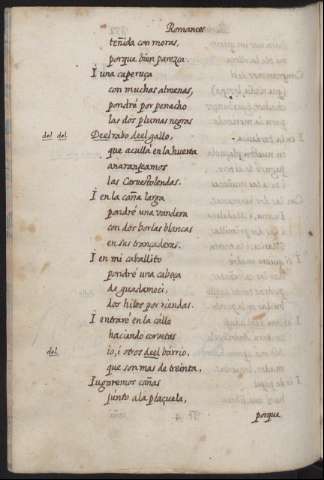 Romances
teñida con moras,
porque bien parezca.
I una caperuça
con muchas almenas,
pondré por penacho
las dos plumas negras
del del Deel rabo deel gallo,
que acullá en la huerta
anaranjeamos
las Carnestolendas.
I en la caña larga
pondré una vandera
con dos borlas blancas
en sus trançaderas.
I en mi caballito
pondré una cabeça
de guadameci,
dos hilos por riendas.
I entraré en la calle
haciendo corvetas
del io, i otros deel barrio,
que son mas de treinta,
Iugaremos cañas
junto a la plaçuela,
porque